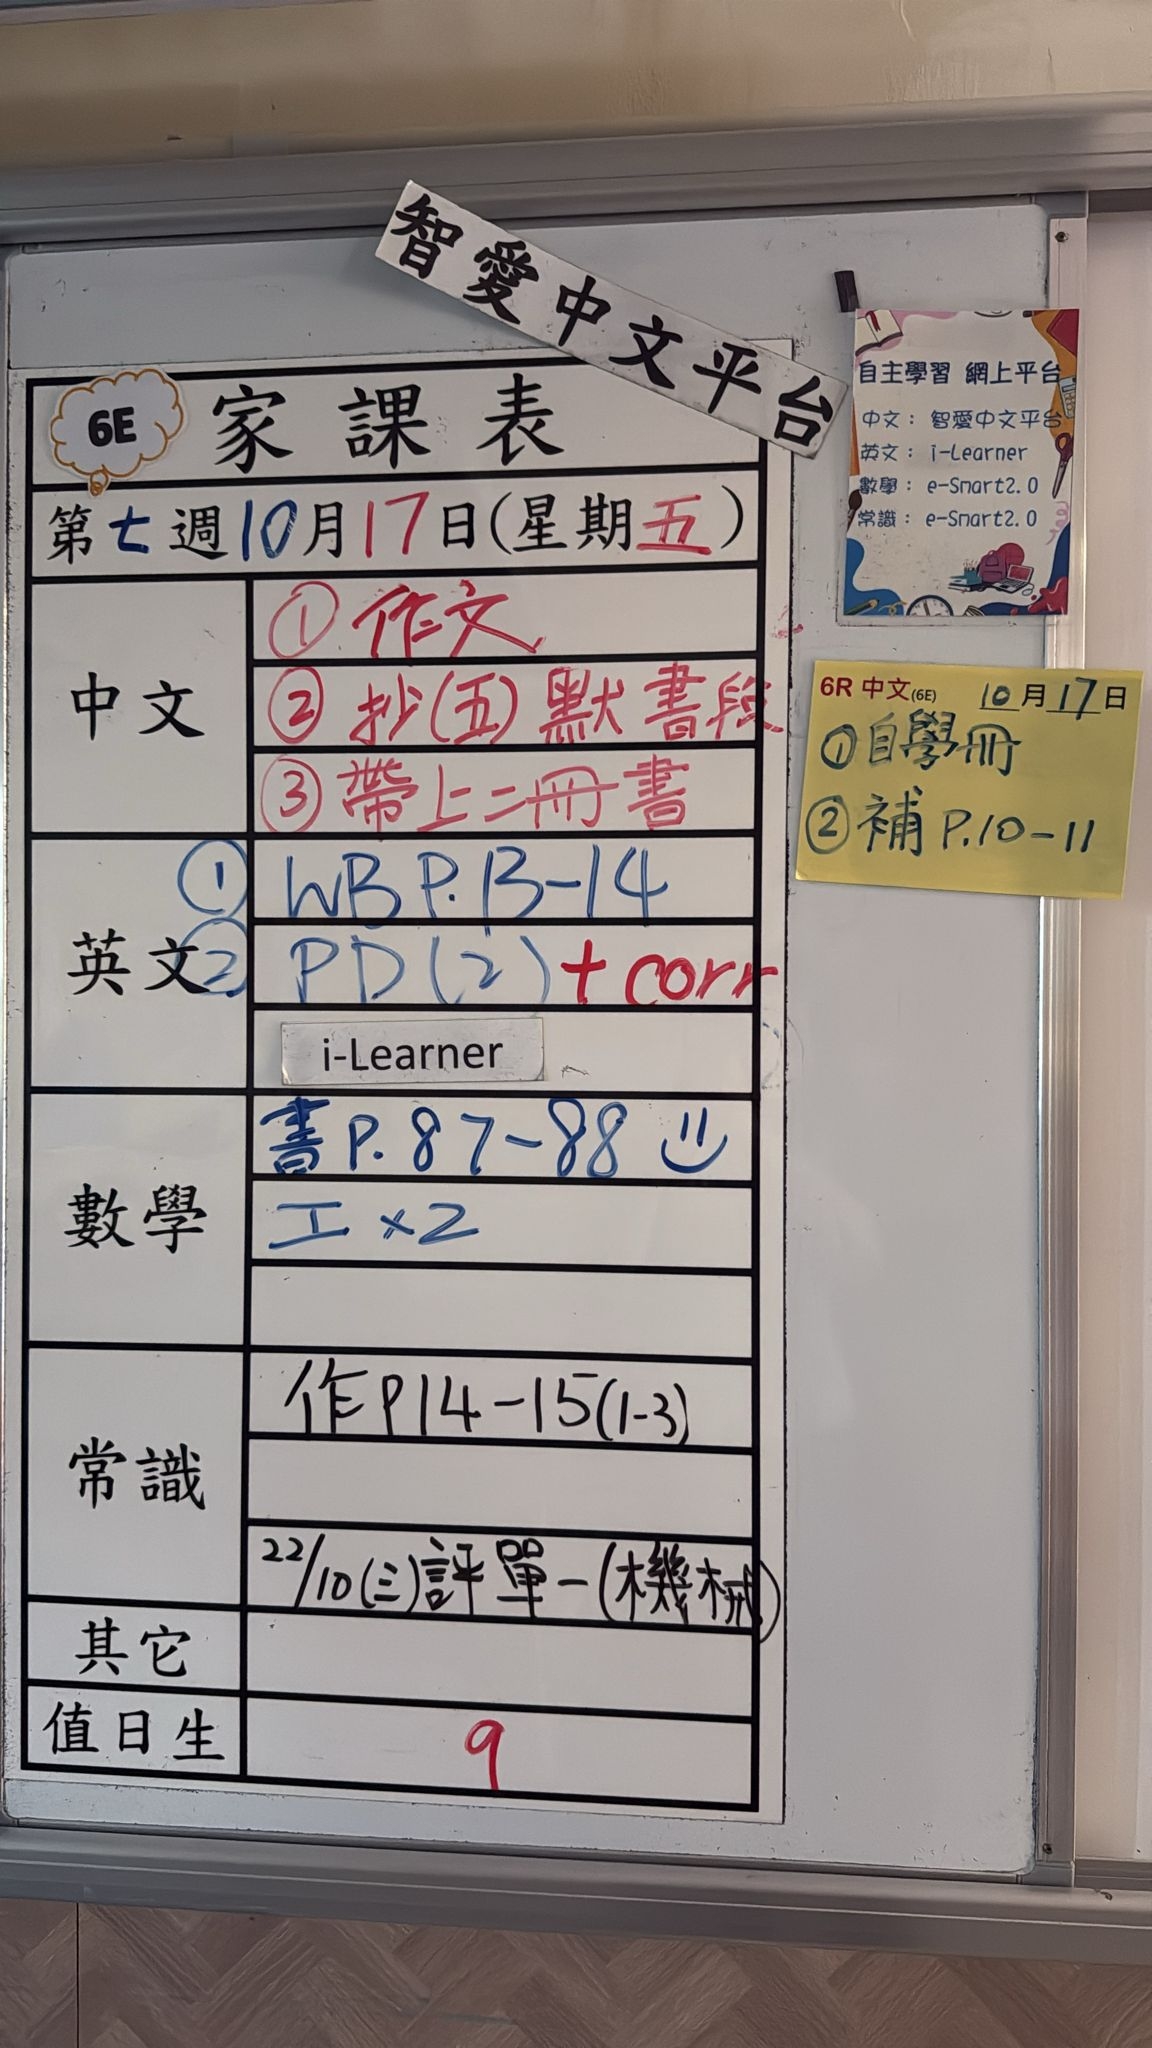 智愛中文平台
6E 家課表
第七週10月17日(星期五)
中文
① 作文
② 抄(五)默書段
③ 帶上二冊書
英文
① WB P.13-14
② PD(2)+corr
i-Learner
數學
書P.87-88
工×2
常識
作P14-15(1-3)
22/10(三)評單一(機械)
其它
值日生
9
自主學習 網上平台
中文：智愛中文平台
英文：i-Learner
數學：e-Smart2.0
常識：e-Smart2.0
6R 中文(6E) 10月17日
①自學冊
②補 P.10-11